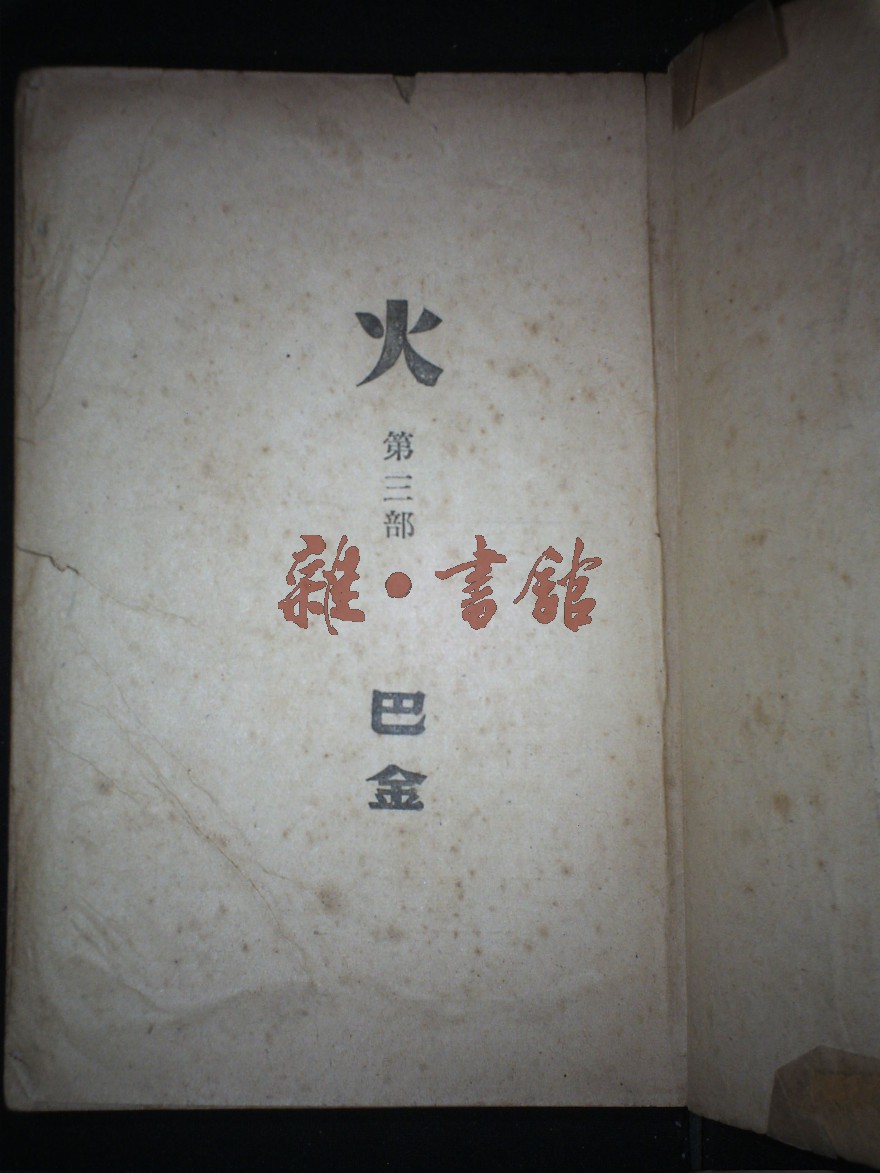 火
第三部
雜·書館
巴金